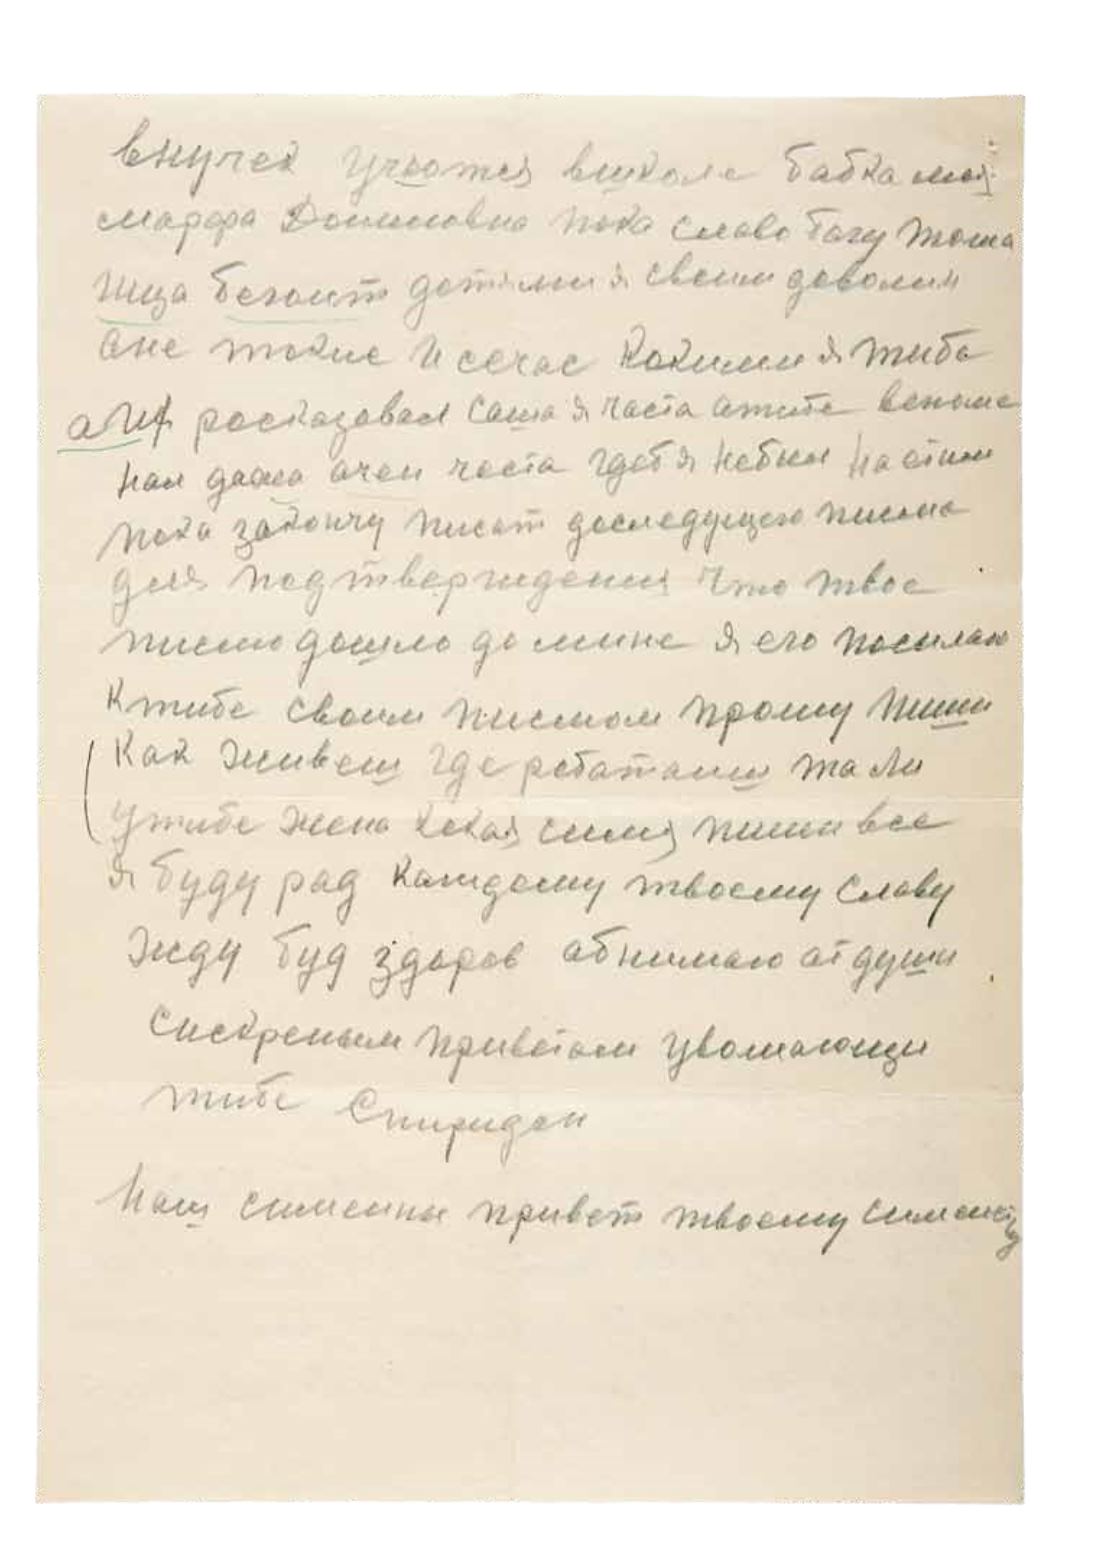 внучек учаотся вшколе бабка моя
марфа Доминовна пока славо богу тома
шца бегаит детями я своим доволин
оне такие и сечас какими я тибе
а их расказовал Саша я часта отибе вспоми
нал дажа очен часта гдеб я небыл На етим
пока закончу писат доследущево писма
для подтверждения что твое
писмо дошло до мине я его посилаю
Ктибе своим писмом прошу пиши
Как живеш где работаиш жали
утибе жена какая симя пиши все
я буду рад Каждому твоему славу
жду буд здоров абнимаю от души
Сискреным приветом уважающи
тибе Спиридон
Наш сименны привет твоему сименству